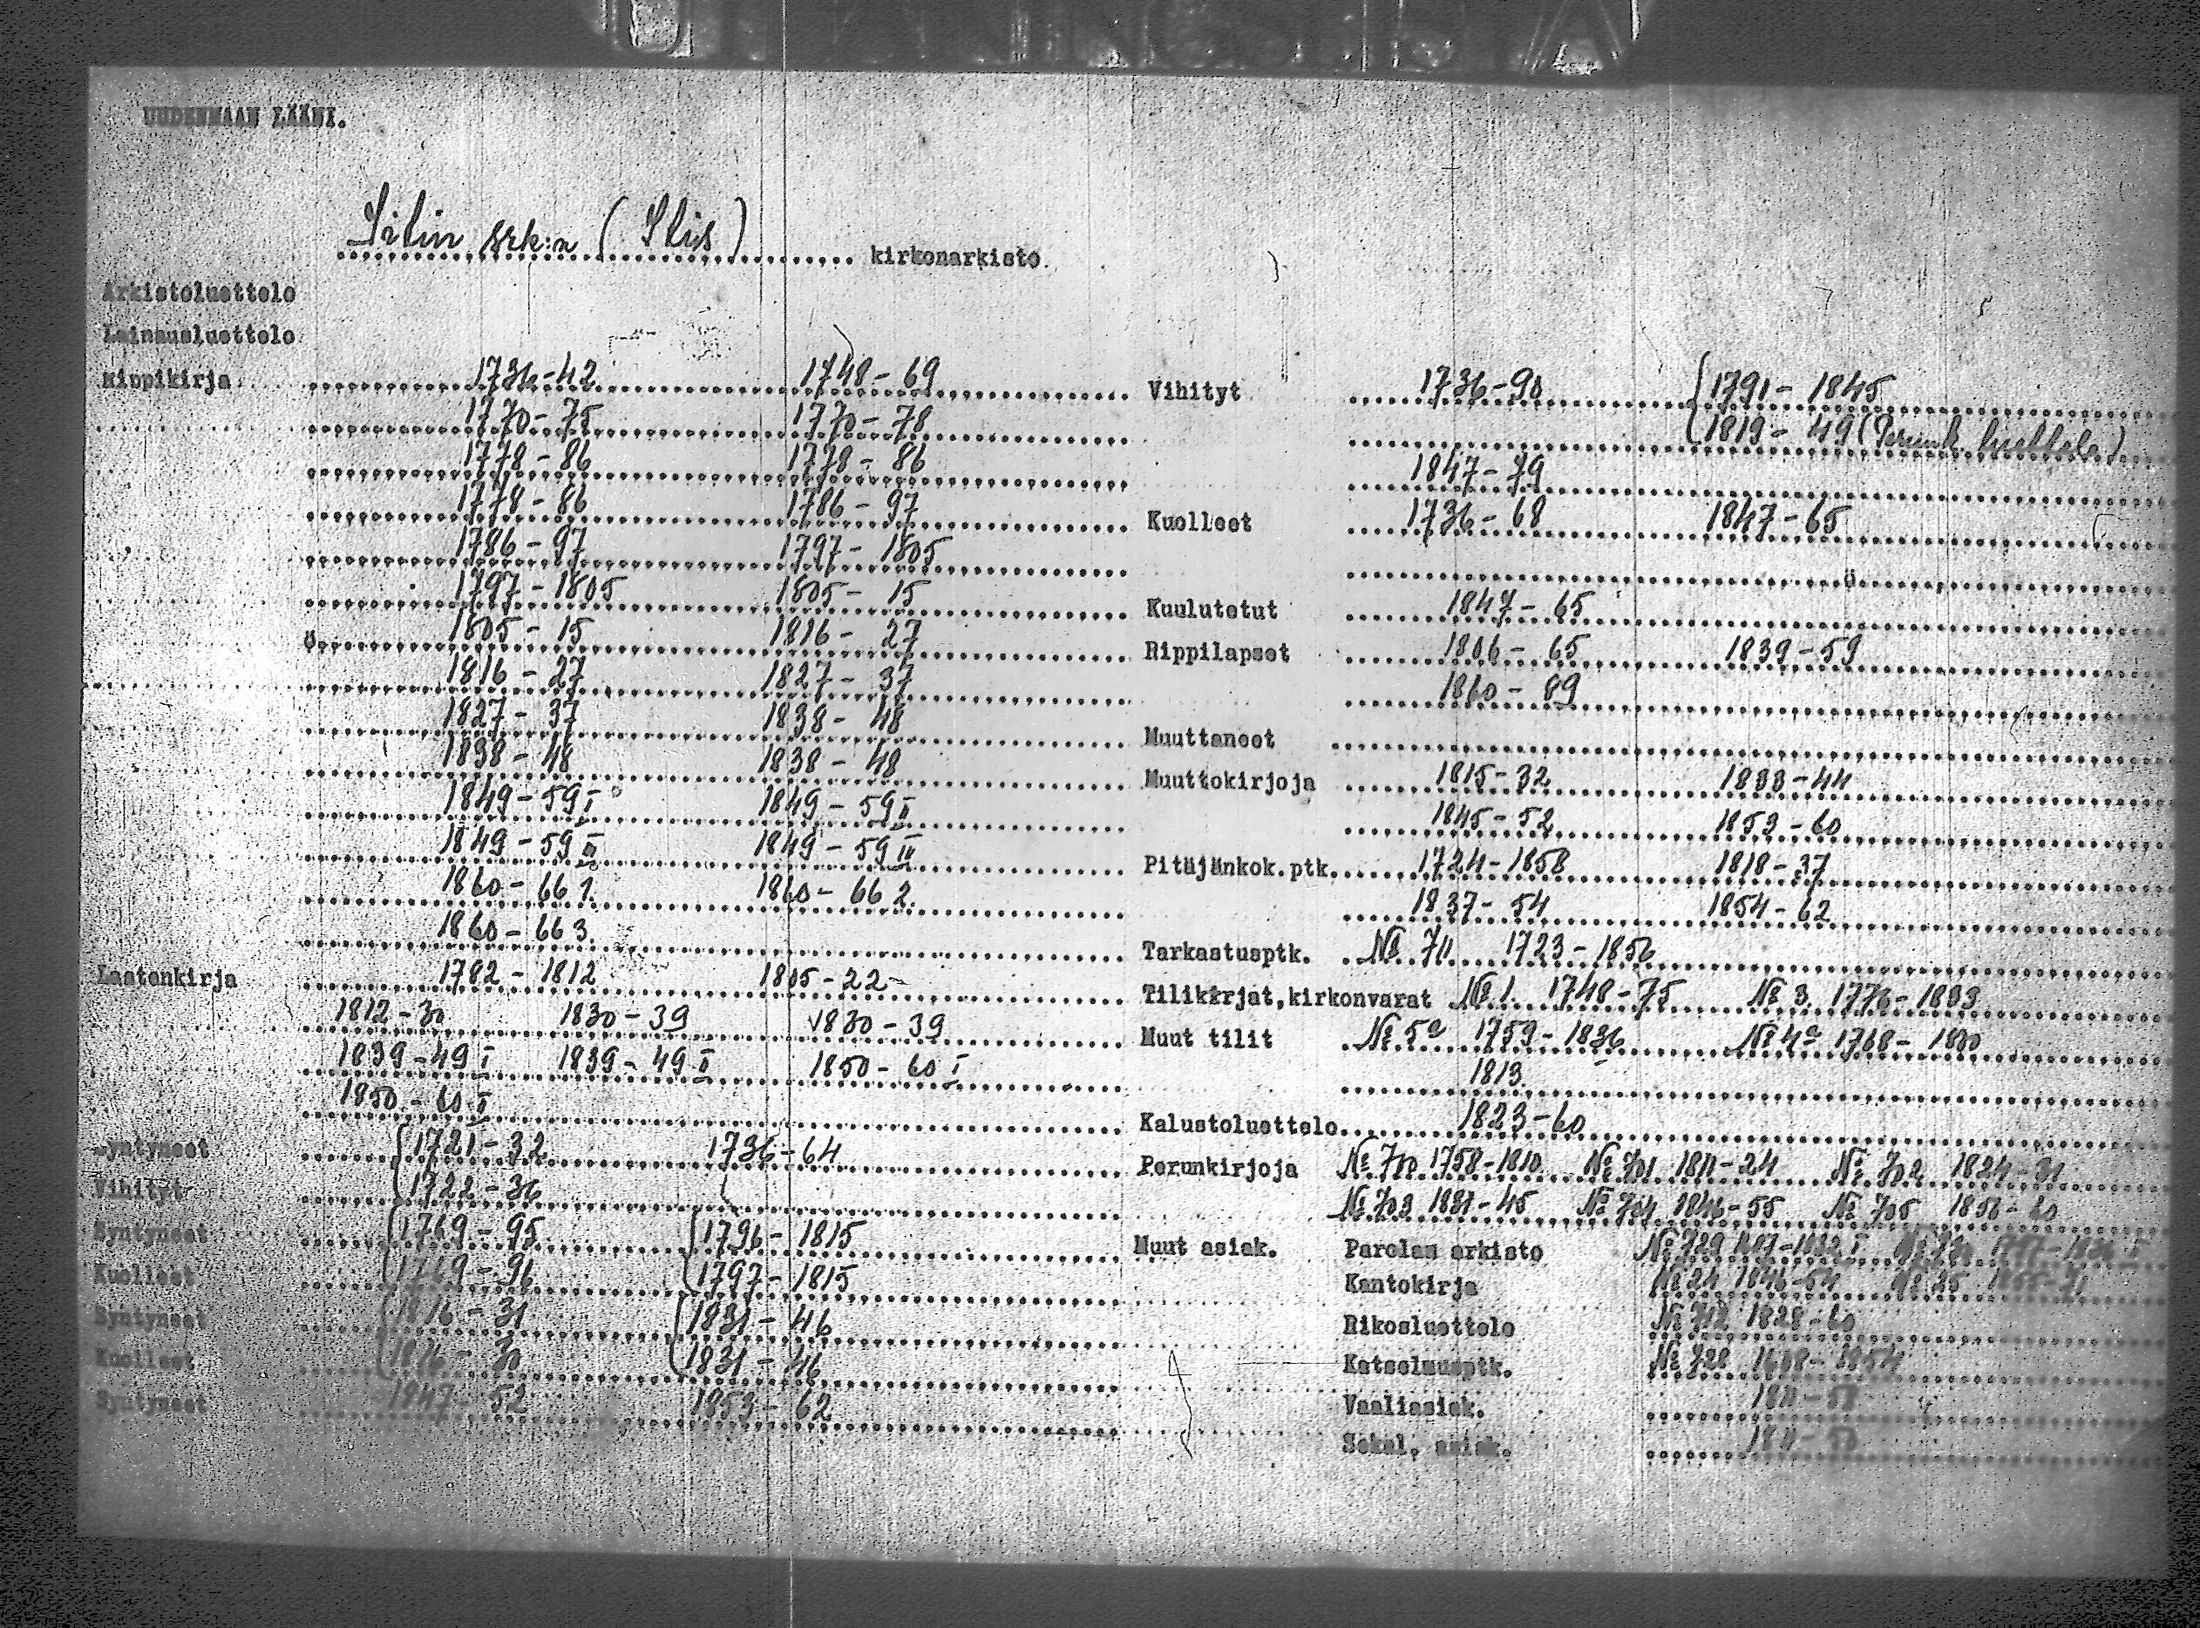 UUDENMAAN LÄÄNI.
srk:n ( ) kirkonarkisto
Arkistoluettelo
Lainausluettelo
Rippikirja 1736-42 1748-69
1770-75 1770-78
1778-86 1778-86
1778-86 1786-97
1786-97 1797-1805
1797-1805 1805-15
1805-15 1816-27
1816-27 1827-37
1827-37 1838-48
1838-48 1838-48
1849-59 I 1849-59 II
1849-59 1849-59 III
1860-66 1. 1860-66 2.
1860-66 3.
Lastenkirja 1782-1812 1805-22
1812-30 1830-39 1830-39
1839-49 I 1839-49 II 1850-60 I
1850-60 II
Syntyneet 1721-32 1736-64
Vihityt 1722-36
Syntyneet 1769-95 1796-1815
Kuolleet 1769-96 1797-1815
Syntyneet 1816-31 1831-46
Kuolleet 1816-30 1831-46
Syntyneet 1847-52 1853-62
Vihityt 1736-90 1791-1845
1819-49 (
1847-79
Kuolleet 1736-68 1847-65
Kuulutetut 1847-65
Rippilapset 1806-65 1839-59
1860-89
Muuttaneet
Muuttokirjoja 1815-32 1833-44
1845-52 1853-60
Pitäjänkok.ptk. 1724-1858 1818-37
1837-54 1854-62
Tarkastusptk. № 711 1723-1856
Tilikirjat,kirkonvarat № 1. 1748-75 № 3. 1776-1833
Muut tilit № 5a 1759-1836 № 4a 1768-1800
1813.
Kalustoluettelo 1823-60
Perunkirjoja № 700 1758-1810 № 701 1811-24 № 702 1824-31
№ 703 1831-45 № 704 1846-55 № 705 1856-60
Muut asiak. Parolan arkisto № 729
Kantokirja № 24 1846-54 № 25
Rikosluettelo № 712 1828-60
Katselmusptk. № 728
Vaaliasiak. 1811-57
Sekal. asiak.